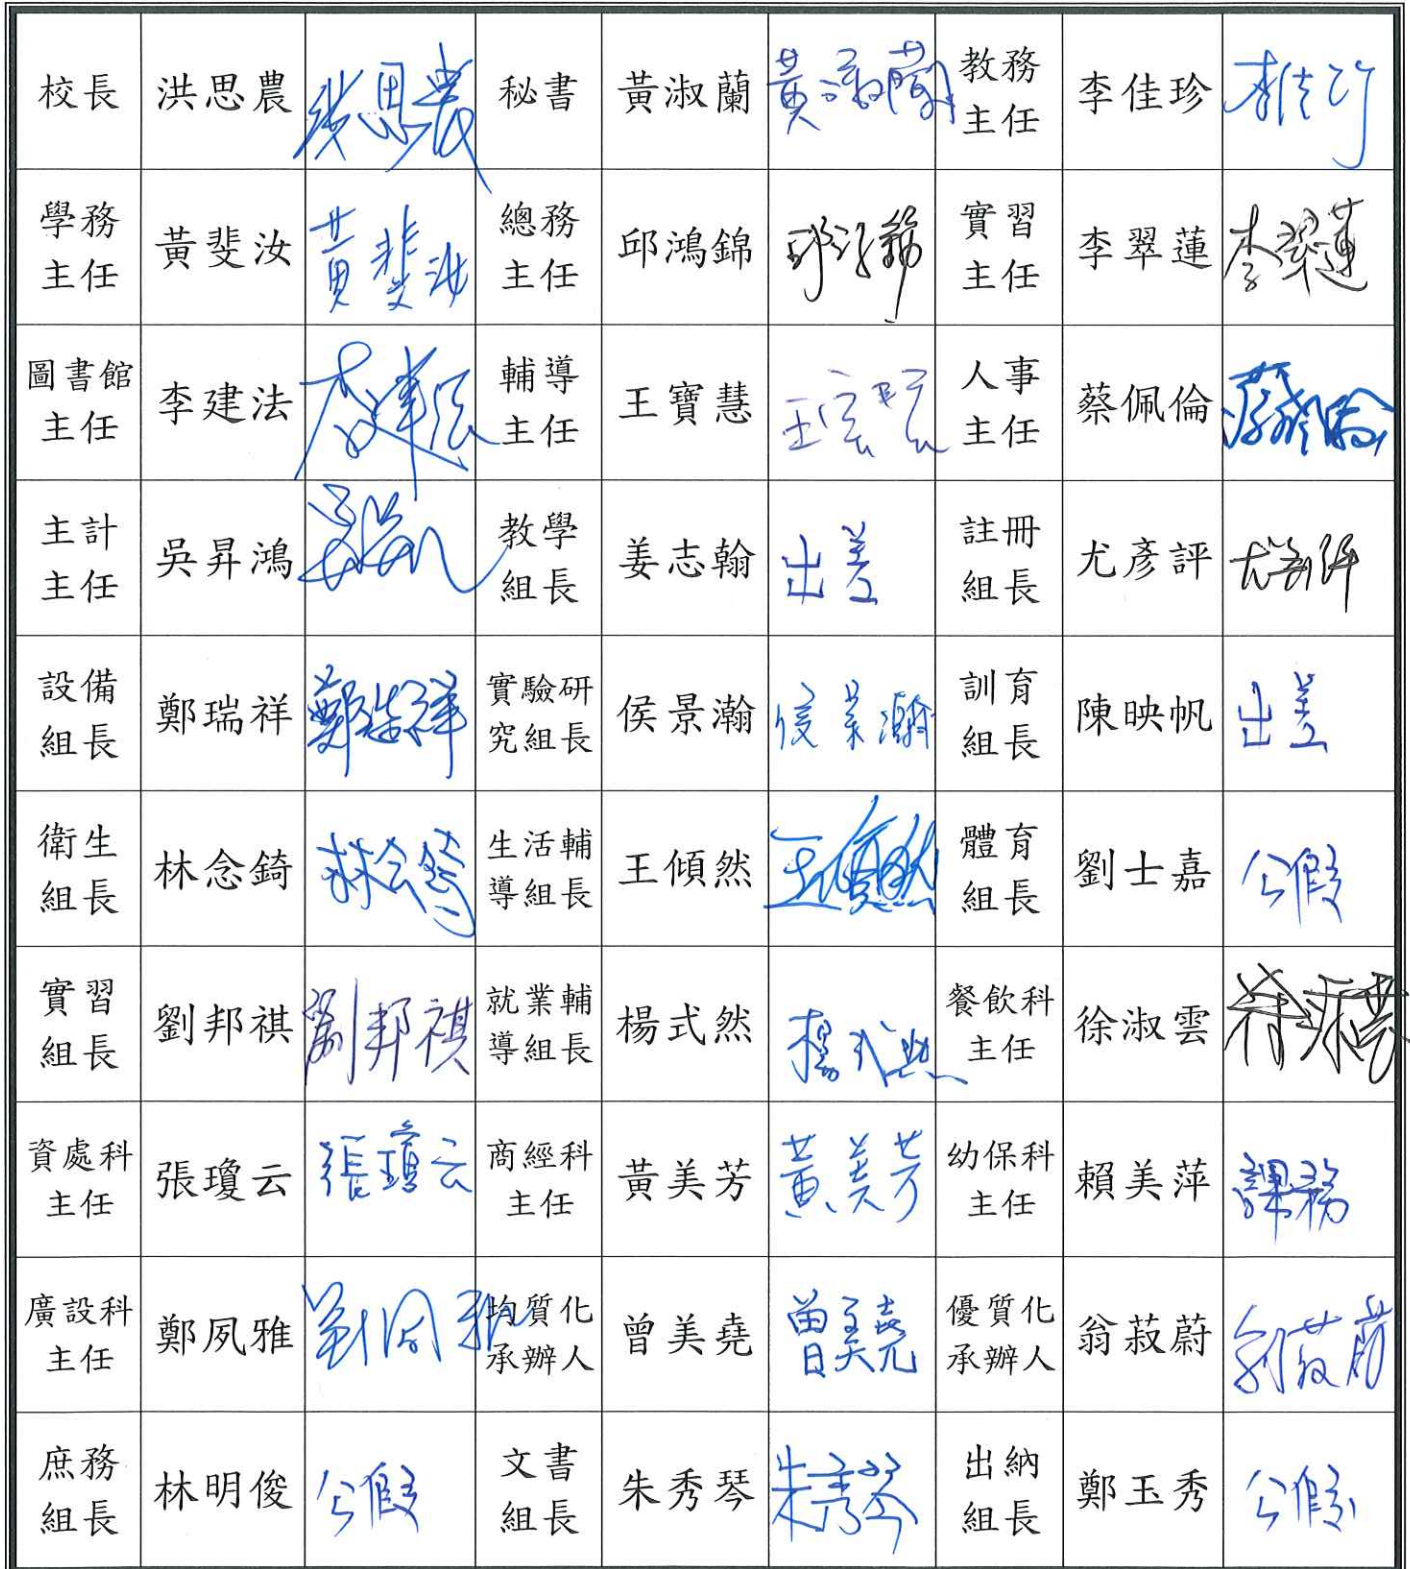 校長 洪思農 洪思農 秘書 黃淑蘭 黃淑蘭 教務主任 李佳珍 李佳珍
學務主任 黃斐汝 黃斐汝 總務主任 邱鴻錦 邱鴻錦 實習主任 李翠蓮 李翠蓮
圖書館主任 李建法 李建法 輔導主任 王寶慧 人事主任 蔡佩倫 蔡佩倫
主計主任 吳昇鴻 教學組長 姜志翰 出差 註冊組長 尤彥評 尤彥評
設備組長 鄭瑞祥 鄭瑞祥 實驗研究組長 侯景瀚 侯景瀚 訓育組長 陳映帆 出差
衛生組長 林念錡 林念錡 生活輔導組長 王傾然 王傾然 體育組長 劉士嘉 公假
實習組長 劉邦祺 劉邦祺 就業輔導組長 楊式然 楊式然 餐飲科主任 徐淑雲 徐淑雲
資處科主任 張瓊云 張瓊云 商經科主任 黃美芳 黃美芳 幼保科主任 賴美萍 課務
廣設科主任 鄭夙雅 均質化承辦人 曾美堯 曾美堯 優質化承辦人 翁菽蔚
庶務組長 林明俊 公假 文書組長 朱秀琴 朱秀琴 出納組長 鄭玉秀 公假